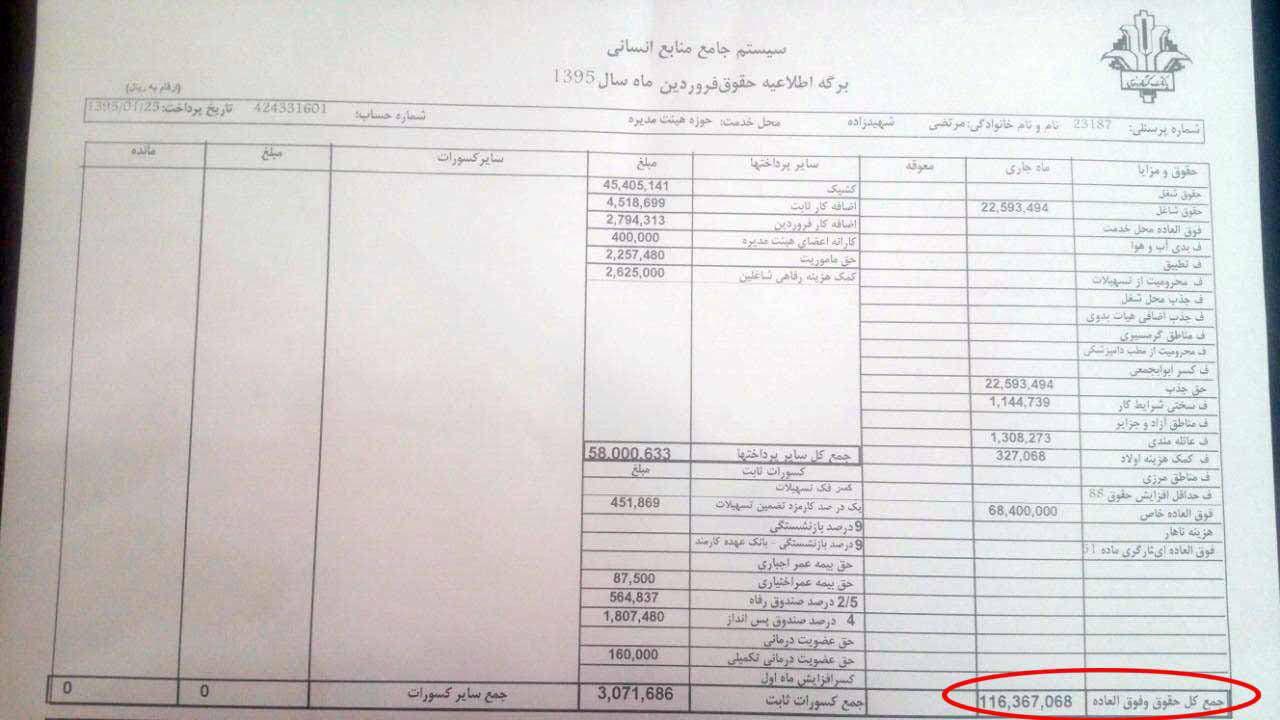 سیستم جامع منابع انسانی
برگه اطلاعیه حقوق فروردین ماه سال 1395
(ارقام به ریال)
شماره پرسنلی: 23187 نام و نام خانوادگی: مرتضی شهیدزاده محل خدمت: حوزه هیئت مدیره شماره حساب: 424331601 تاریخ پرداخت: 1395/01/25
حقوق و مزایا ماه جاری معوقه سایر پرداختها مبلغ سایر کسورات مبلغ مانده
حقوق شغل
حقوق شاغل 22,593,494
فوق العاده محل خدمت
ف بدی آب و هوا
ف تطبیق
ف محرومیت از تسهیلات
ف جذب محل شغل
ف جذب اضافی هیات بدوی
ف مناطق گرمسیری
ف محرومیت از مطب دامپزشکی
ف کسر ابوابجمعی
حق جذب 22,593,494
ف سختی شرایط کار 1,144,739
ف مناطق آزاد و جزایر
ف عائله مندی 1,308,273
ف کمک هزینه اولاد 327,068
ف مناطق مرزی
ف حداقل افزایش حقوق 88
فوق العاده خاص 68,400,000
هزینه ناهار
فوق العاده ایثارگری ماده 51
جمع کل حقوق وفوق العاده 116,367,068
کشیک 45,405,141
اضافه کار ثابت 4,518,699
اضافه کار فروردین 2,794,313
کارانه اعضای هیئت مدیره 400,000
حق ماموریت 2,257,480
کمک هزینه رفاهی شاغلین 2,625,000
جمع کل سایر پرداختها 58,000,633
کسورات ثابت مبلغ
کسر فک تسهیلات
یک در صد کارمزد تضمین تسهیلات 451,869
9 درصد بازنشستگی
9 درصد بازنشستگی - بانک عهده کارمند
حق بیمه عمر اجباری
حق بیمه عمر اختیاری 87,500
2/5 درصد صندوق رفاه 564,837
4 درصد صندوق پس انداز 1,807,480
حق عضویت درمانی
حق عضویت درمانی تکمیلی 160,000
کسر افزایش ماه اول
جمع کسورات ثابت 3,071,686
جمع سایر کسورات 0 0